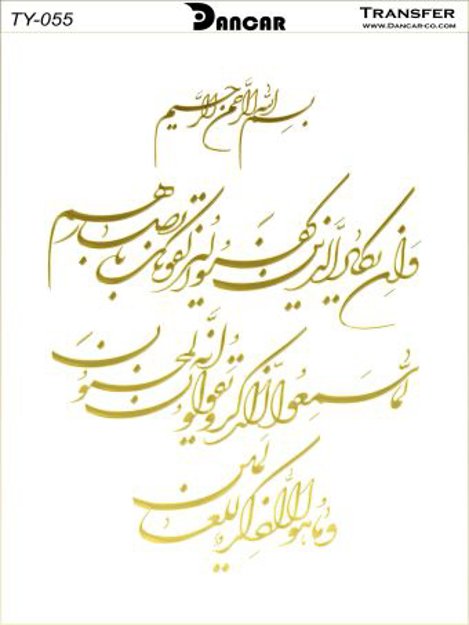 TY-055
DANCAR
TRANSFER
WWW.DANCAR-CO.COM
بسم الله الرحمن الرحیم
وَان یکاد الَّذین کفروا لیزلقونک بابصارهم
لمَّا سَمِعُوا الذّکر و یقولون انَّه لمجنون
وَما هُوَ الّا ذِکر للعالمین